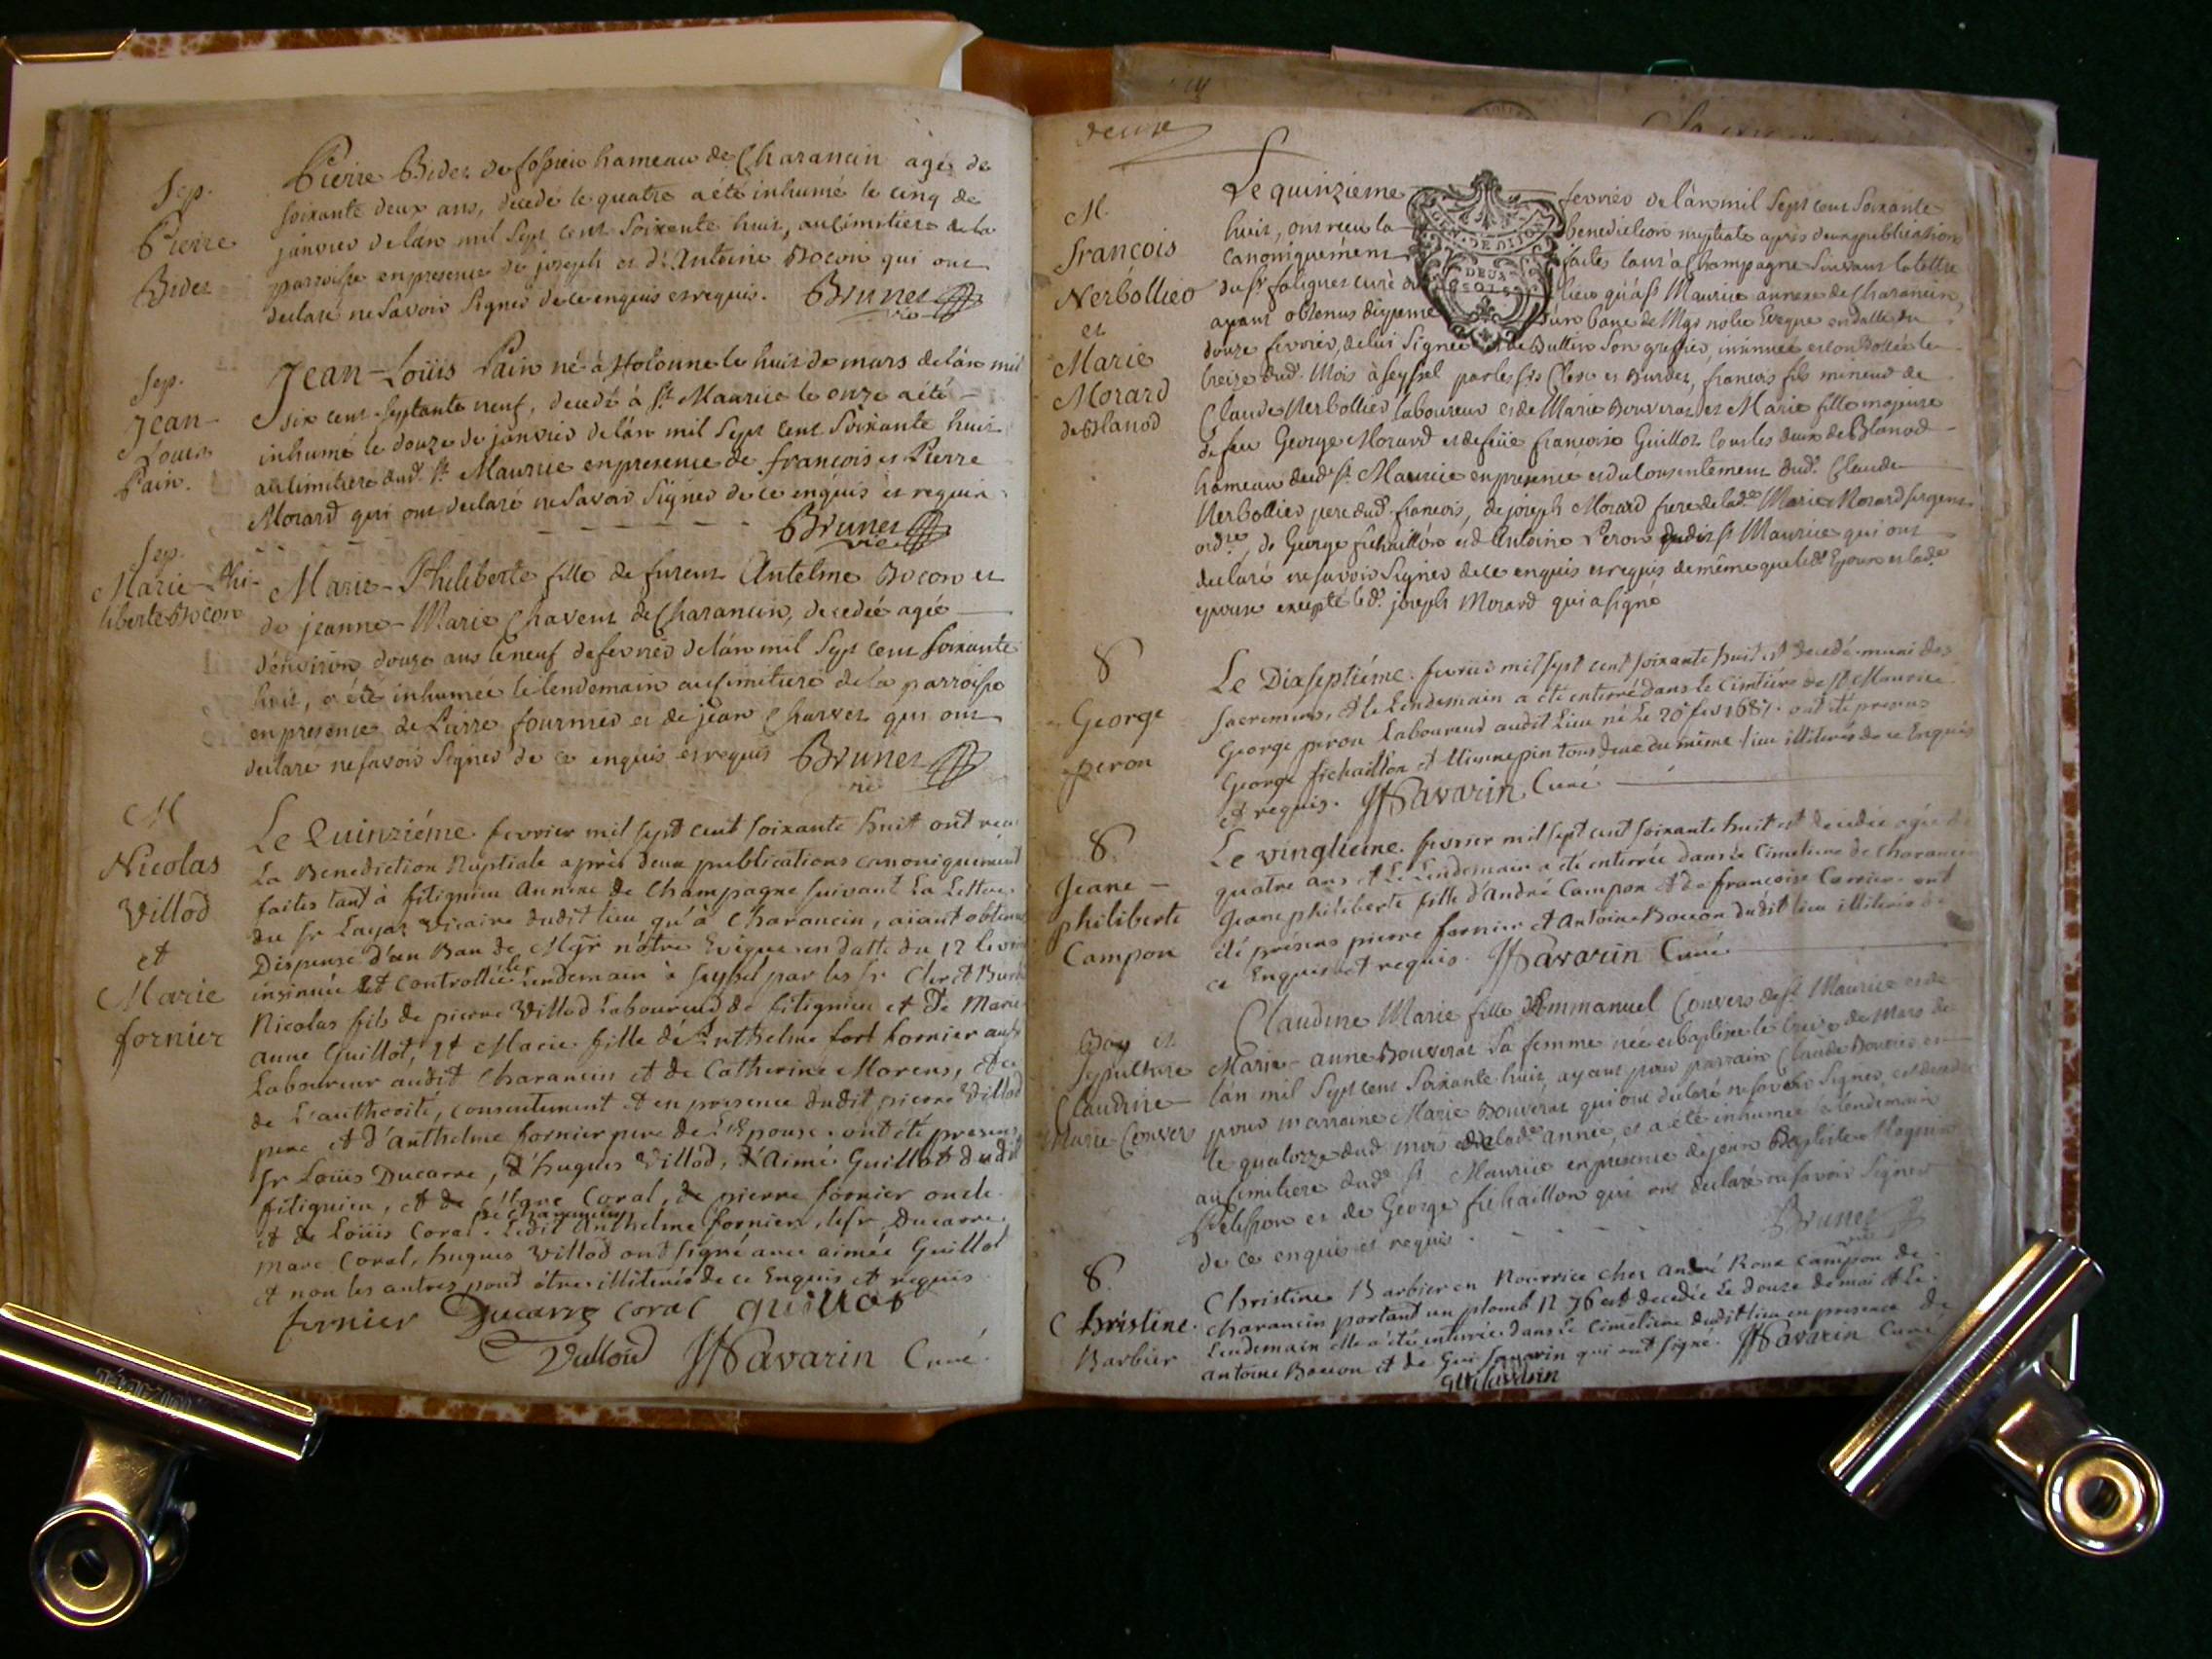 Sep.
Pierre
Bidet
Pierre Bidet de fossieu hameau de Charancin agé de
soixante deux ans, decedé le quatre a été inhumé le cinq de
janvier de lan mil sept cent soixante huit, au cimitiere de la
parroisse en presence de joseph et d'Antoine Bocon qui ont
declaré ne savoir signer de ce enquis et requis. Brunet
vic
Sep.
Jean-
Louis
Pain.
Jean-Loüis Pain né à Hotonne le huit de mars de lan mil
six cent septante neuf, decedé à St. Maurice le onze a été
inhumé le douze de janvier de lán mil sept cent soixante huit
au cimitiere dud. St. Maurice en presence de francois et Pierre
Morard qui ont declaré ne savoir signer de ce enquis et requis
Brunet
vic
Sep.
Marie-Phi-
liberte Bocon
Marie-Philiberte fille de furent Antelme Bocon et
de jeanne-Marie Chavent de Charancin, decedée agée
d'environ douze ans le neuf de fevrier de lán mil sept cent soixante
huit, a été inhumée le lendemain au cimitiere de la parroisse
en presence de Pierre fournier et de jean Charvet qui ont
declaré ne savoir signer de ce enquis et requis Brunet
vic
M
Nicolas
Villod
et
Marie
fornier
Le Quinziéme fevrier mil sept cent soixante huit ont recu
La Benediction Nuptiale après deux publications canoniquement
faites tant à fitignieu Annexe de Champagne suivant La Lettre
du sr Layat Vicaire dudit lieu qu'à Charancin, aiant obtenu
Dispense d'un Ban de Mgr nôtre Evêque en datte du 12 fevrier
insinuée et controllée le Lendemain à seyssel par les sr Clerc et Burdet
Nicolas fils de pierre Villod Laboureur de fitignieu et De Marie
anne Guillot, et Marie fille de Anthelme fornier aussi
Laboureur audit Charancin et de Catherine Morens, et ce
de L'authorité, consentement et en presence dudit pierre Villod
pere et d'Anthelme fornier pere de L'Epouse. ont été presens
sr Loüis Ducarre, d'hugues Villod, d'Aimé Guillot dudit
fitignieu, et de Coral, de pierre fornier oncle
et de Loüis Coral de charancin. Ledit Anthelme fornier, le sr Ducarre
marc Coral, hugues Villod ont signé avec aimée Guillot
et non les autres pour être illiterés de ce Enquis et requis
fornier Ducarre coral guillot
Villoud JfSavarin Curé.
deuxe
M.
francois
Nerbollier
et
Marie
Morard
de Blanod
Le quinzieme fevrier de lán mil sept cent soixante
huit, ont recu la benediction nuptiale après deux publications
canoniquement faites tant a Champagne suivant la lettre
du sr. faliguet curé dud. lieu qu'à st. Maurice annexe de Charancin,
ayant obtenus dispense d'un banc de Mgr notre Eveque en datte du
douze fevrier, de lui signée et de Buttin son greffier, insinuée et controllée le
treize dud. Mois à seyssel par les srs Clerc et Burdet, francois fils mineur de
Claude Nerbollier laboureur et de Marie Bouverat et Marie fille majeure
de feu George Morard et de feüe francoise Guillot tous les deux de Blanod
hameau dud. st. Maurice en presence et du consentement dud. Claude
Nerbollier pere dud. francois, de joseph Morard frere de lade Marie Morard sergent
ordre, de George fichaillon et d'Antoine Peron dudit st Maurice qui ont
declaré ne savoir signer de ce enquis et requis de même que led. Epoux et lade
epouse excepté led. joseph Morard qui a signé
S
George
peron
Le Dixseptiéme. fevrier mil sept cent soixante huit est decedé muni des
sacremens, et le Lendemain a été enterré dans le Cimtière de St Maurice
George peron Laboureur audit Lieu né Le 20 fev 1687. ont été presens
George fichaillon et Etienne pin tous deux du même lieu illiterés de ce Enquis
et requis. JfSavarin Curé
S.
Jeane-
philiberte
Campon
Le vingtieme. fevrier mil sept cent soixante huit est decedée agée de
quatre ans et Le Lendemain a été enterrée dans le Cimetiere de charancin
Jeane philiberte fille d'André Campon et de françoise Carrier. ont
été présens pierre fornier et Antoine Bocon dudit lieu illiterés de
ce Enquis et requis. JfSavarin Curé.
Bap et
sepulture
Claudine-
Marie Convers
Claudine Marie fille d'Emmanuel Convers de st. Maurice et de
Marie-anne Bouverat sa femme née et baptisée le treize de Mars de
lán mil sept cent soixante huit, ayant pour parrain Claude Bouvier et
pour marraine Marie Bouverat qui ont declaré ne savoir signer, est decedée
le quatorze dud. mois de lade année, et a été inhumée le lendemain
au cimitiere dud. st. Maurice en presence de jean Baptiste Mognin
Pelisson et de George fichaillon qui ont declaré ne savoir signer
de ce enquis et requis. Brunet
S.
Christine.
Barbier
Christine Barbier en Nourrice chez André Roux Campon de
charancin portant un plomb N 76 est decedée Le douze de mai et Le
Lendemain elle a été enterrée dans Le Cimetiere dudit lieu en presence de
antoine Bocon et de Gui savarin qui ont signé. JfSavarin Curé
Gui savarin